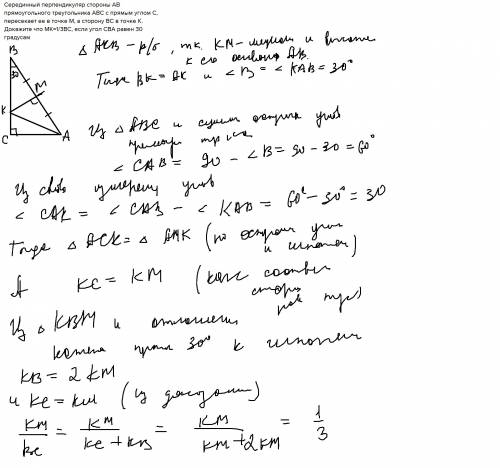 Серединный перпендикуляр стороны АВ
прямоугольного треугольника АВС с прямым углом С,
пересекает ее в точке М, а сторону ВС в точке К.
Докажите что МК=1/3ВС, если угол СВА равен 30
градусам
B
30
M
K
C
A
Δ AKB - р/б, т.к. KM - медиана и высота
к его основанию AB.
Тогда BK = AK и ∠B = ∠KAB = 30°
Из Δ ABC и суммы острых углов
∠CAB = 90 - ∠B = 90 - 30 = 60°
Из измерения углов
∠CAK = ∠CAB - ∠KAB = 60° - 30° = 30
Тогда Δ ACK = Δ AMK (по острому углу
и гипотен)
А KC = KM (как соответ
сторон
рав треуг)
Из Δ KBM и отношения
катета против 30° к гипотен
KB = 2 KM
и KC = KM (из доказан)
KM/BC = KM/KC + KB = KM/KM + 2KM = 1/3